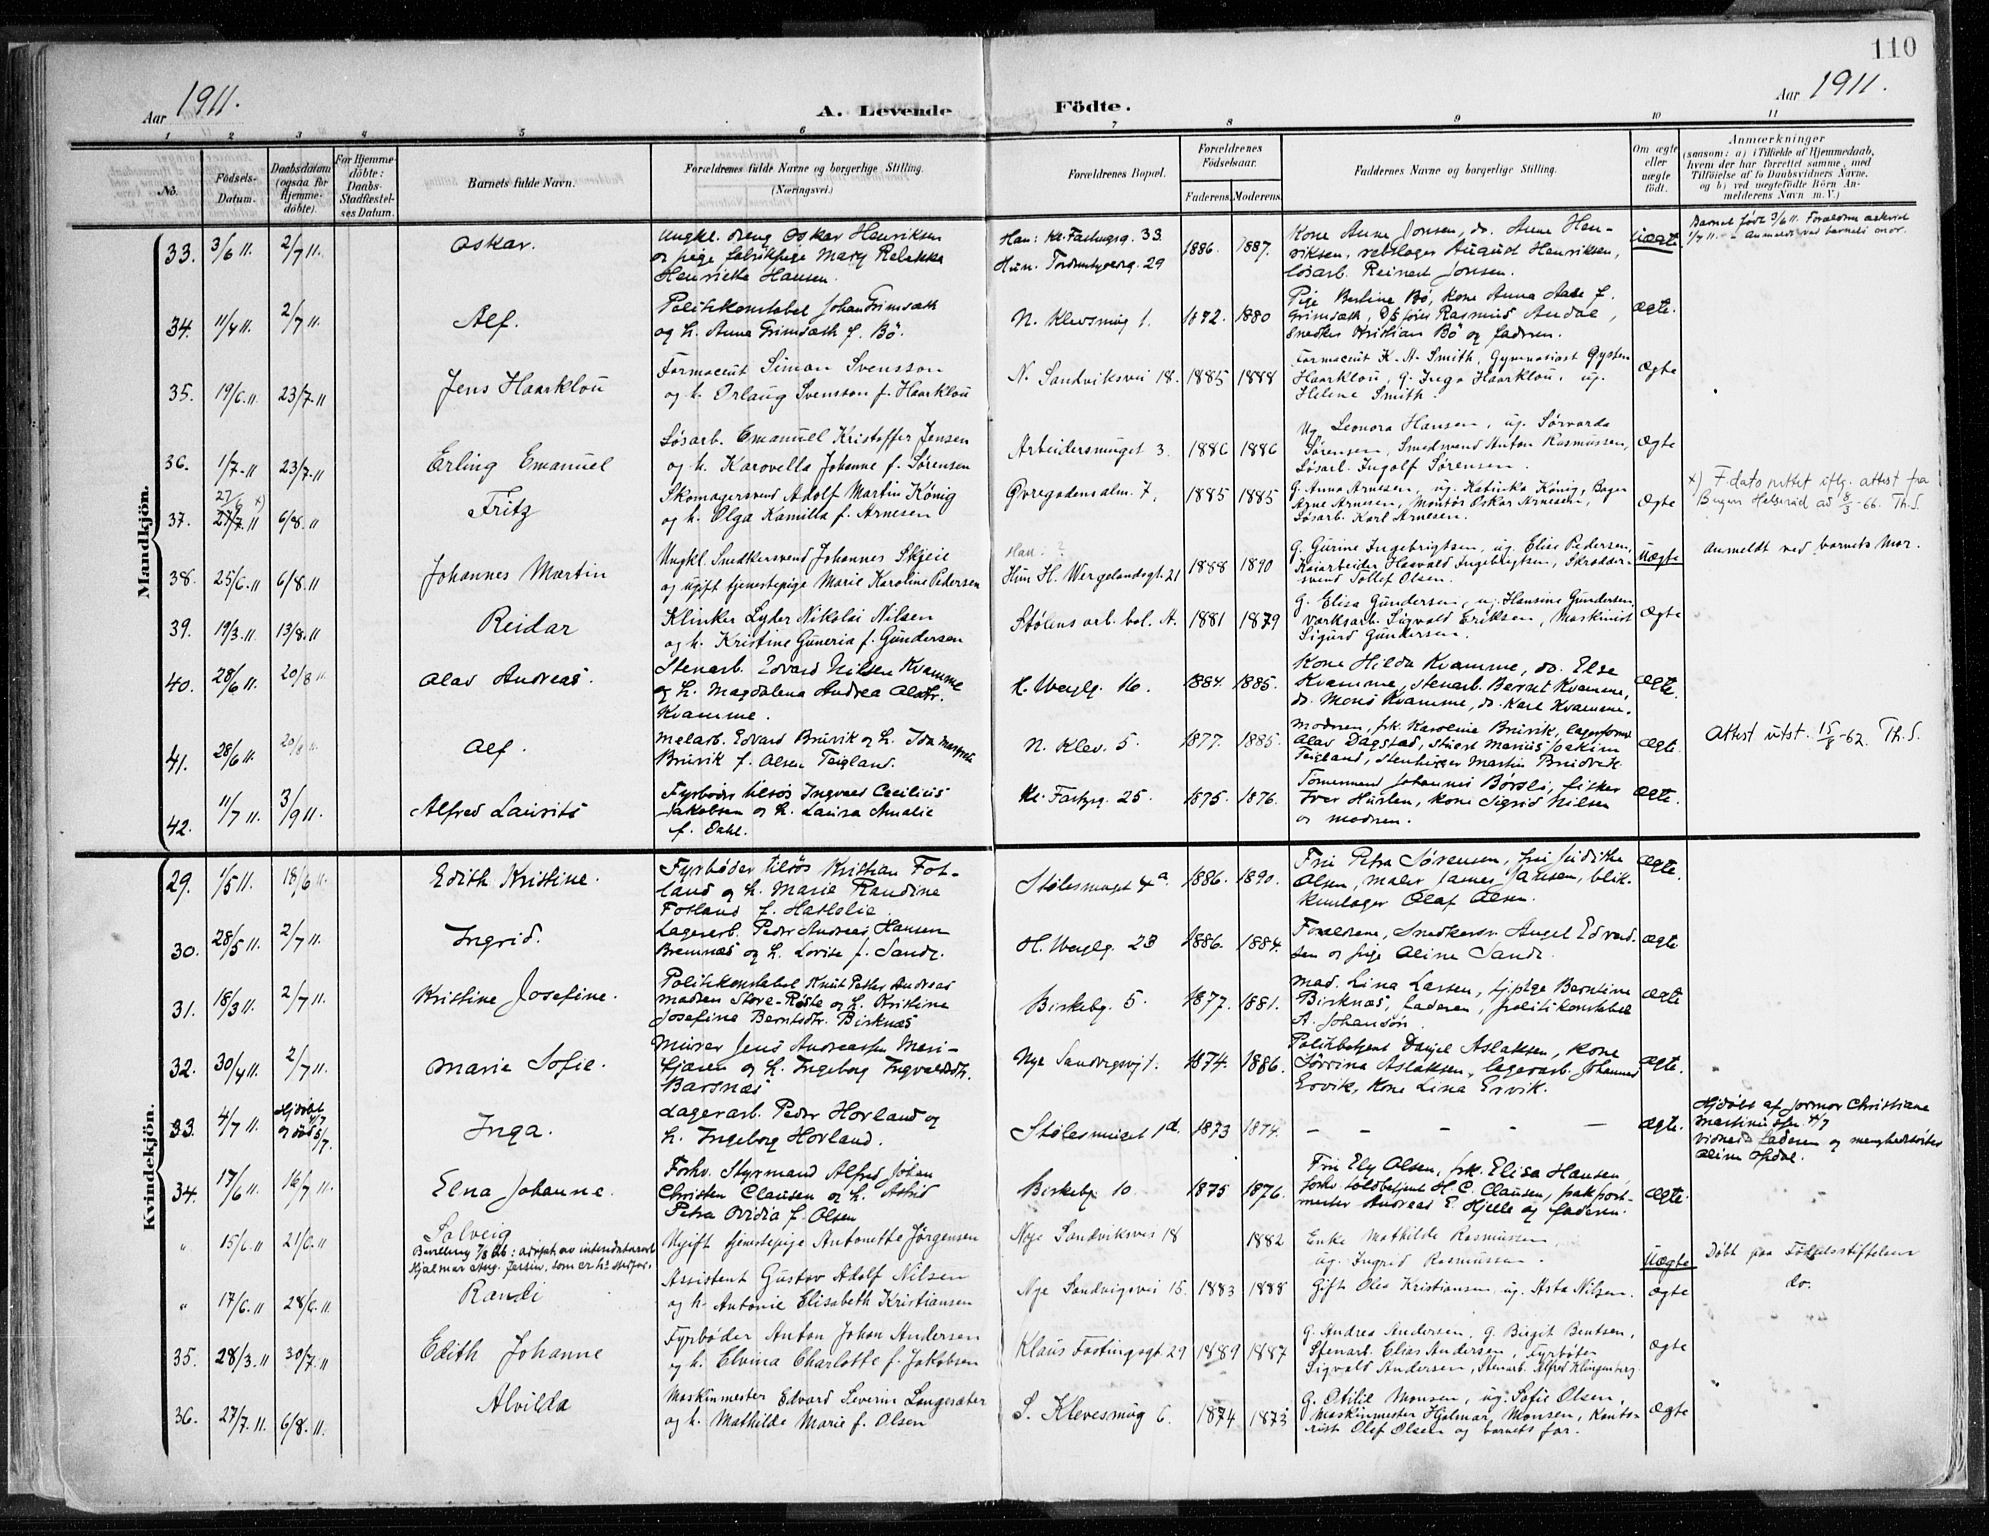 110
Aar 1911.
A. Levende Födte.
Aar 1911.
1 2 3 4 5 6 7 8 9 10 11
No.
Födsels-
Datum.
Daabsdatum
(ogsaa for
Hjemme-
döbte).
For Hjemme-
döbte:
Daabs-
Stadfæstel-
ses Datum.
Barnets fulde Navn.
Forældrenes fulde Navne og borgerlige Stilling.
(Næringsvei.)
Forældrenes Bopæl.
Forældrenes
Födselsaar.
Faderens. Moderens.
Faddernes Navne og borgerlige Stilling.
Om ægte
eller
uægte
født.
Anmærkninger
(saasom: a) i Tilfælde af Hjemmedaab,
hvem der har forrettet samme, med
Tilføielse af to Daabsvidners Navne.
og b) ved uægtefödte Börn An-
melderens Navn m. V.)
Mandkjön.
33. 3/6 11. 2/7 11 Oskar.
Ungkl. dreng Oskar Henriksen
og pige fabrikpige Mary Rebekka
Henriette Hansen.
Han: Kl. Fastingsg. 33.
Hun. Tordenskjoldsg. 29
1886. 1887.
Kone Anne Jonsen, do. Anne Hen-
riksen, rebslager August Henriksen,
løsarb. Reinert Jonsen.
Uægte
Barnet født 3/6 11. Forældrene
1/7 11. - Anmeldt ved barnets mor.
34. 11/4 11. 2/7 11 Alf.
Politikonstabel Johan Grimsæth
og h. Anna Grimsæth f. Bö.
N. Klevsmug 1. 1872. 1880
Pige Berline Bö, kone Anna Aase f.
Grimsæth, Rasmus Andal,
snedker Kristian Bö og faderen.
Ægte.
35. 19/6. 11. 23/7. 11 Jens Haarklou
Farmaceut Simon Svensson
og h. Orlaug Svensson f. Haarklou
N. Sandviksvei 18. 1885 1888
Farmaceut K. A. Smith, Gymnasiast Øysten
Haarklou, g. Inga Haarklou, ug.
Helene Smith.
Ægte
36. 1/7. 11 23/7. 11 Erling Emanuel
Løsarb. Emanuel Kristoffer Jensen
og h. Karovella Johanne f. Sørensen
Arbeidersmuget 3. 1886 1886
Ug. Leonora Hansen, ug. Sørvarda
Sørensen, Smedsvend Anton Rasmussen,
Løsarb. Ingolf Sørensen.
Ægte
37. 27/6 x) 27/7. 11 6/8. 11 Fritz
Skomagersvend Adolf Martin König
og h. Olga Kamilla f. Arnesen
Øvregadens alm. 7. 1885 1885
G. Anna Arnesen, ug. Katinka König, Bager
Arne Arnesen, Montør Oskar Arnesen,
Løsarb. Karl Arnesen.
Ægte
x) F.dato rettet iflg. attest fra
Bergen Helseråd av 8/3-66. Th.S.
38. 25/6. 11 6/8. 11 Johannes Martin
Ungkl. Snedkersvend Johannes Skjeie
og ugift tjenestepige Marie Karoline Pedersen
Han. ?
Hun H. Wergelandsgt. 21 1888 1890
G. Gurine Ingebrigtsen, ug. Elise Pedersen,
Kaiarbeider Hasvald Ingebrigtsen, Skrædder-
svend Tollef Olsen.
Uægte
Anmeldt ved barnets Mor.
39. 19/3. 11 13/8. 11 Reidar
Klinker Lyder Nikolai Nilsen
og h. Kristine Guneria f. Gundersen
Stølens arb. bol. A. 1881 1879
G. Elisa Gundersen, ug. Hansine Gundersen,
Værksarb. Sigvald Eriksen, Maskinist
Sigurd Gundersen.
Ægte
40. 28/6 11. 20/8 11 Olav Andreas.
Stenarb. Edvard Nilsen Kvamme
og h. Magdalena Andrea Olsdtr.
Kvamme.
H. Werglg. 16. 1884. 1885.
Kone Hilda Kvamme, do. Else
Kvamme, stenarb. Bernt Kvamme,
do. Mons Kvamme, do. Karl Kvamme.
Ægte.
41. 28/6 11. 20/8 11. Alf.
Malarb. Edvard Bruvik og h. Ida Margrete
Bruvik f. Olsen Teigland.
N. Klev. 5. 1877. 1885.
Modren, frk. Karoline Bruvik, lagerform.
Olav Dagstad, Marius Joakim
Teigland, Stenhugger Martin Bruvik.
Ægte.
Attest utst. 15/8-62. Th.S.
42. 11/7 11. 3/9 11. Alfred Laurits
Fyrbøder tilsös Ingvald Cecilius
Jakobsen og h. Laura Amalie
f. Dahl.
Kl. Fastgg. 25. 1875. 1876.
Tømmermand Johannes Børdli, fisker
Iver Huslen, kone Sigrid Nilsen
og modren.
Ægte.
Kvindekjön.
29. 1/5 11. 18/6 11. Edith Kristine.
Fyrbøder tilsös Kristian Fot-
land og h. Marie Randine
Fotland f. Hatlelie
Stølesmuget 4a 1886. 1890.
Fru Petra Sørensen, fru Judithe
Olsen, maler James Jansen, blik-
kenslager Olaf Olsen.
Ægte.
30. 28/5 11. 2/7 11. Ingrid.
Lagerarb. Peder Andreas Hansen
Bremnes og h. Lovise f. Sande.
H. Werglg. 23 1886. 1884.
Forældrene, Snedkersv. Angel Edvard-
sen og pige Aline Sande
Ægte
31. 18/3 11. 2/7 11. Kristine Josefine.
Politikonstabel Knut Peter Andreas
Madsen Store-Røste og h. Kristine
Josefine Berntsdtr. Birknæs
Birkebg. 5. 1877. 1881.
Mad. Lina Larsen, tjpige Berntine
Birknæs, faderen, politikonstabel
A. Johanson.
Ægte
32. 30/4 11. 2/7 11. Marie Sofie.
Murer Jens Andreassen Meri-
tjæren og h. Ingeborg Ingvaldsdtr.
Barsnæs
Nye Sandvigsvj 1. 1874. 1886.
Politibetjent Daniel Aslaksen, kone
Sørrina Aslaksen, lagerarb. Johannes
Ervik, kone Lina Ervik.
Ægte.
33. 4/7 11. Hjdøbt 4/7 og död 5/7. Inga.
Lagerarb. Peder Hovland og
h. Ingeborg Hovland.
Stølesmuget 1d. 1873 1874. - - - - -
Ægte.
Hjdøbt af jormor Christiane
Martinussen 4/7
Vidner faderen og menighedssøster
Aline Opdal.
34. 17/6 11. 16/7 11. Elna Johanne.
Forhv. Styrmand Alfred Johan
Christen Clausen og h. Astrid
Petra Ovidia f. Olsen
Birkebg 10. 1875 1876.
Fru Ely Olsen, frk. Elisa Hansen,
Forhv. toldbetjent H. C. Clausen, pakpost-
mester Andreas E. Hjelle og faderen.
Ægte.
" 15/6. 11 21/6. 11 Solveig
Bevilling 7/8 26: adopt. av
Hjalmar Aug. Jersin, som er hs stedfar.
Ugift tjenestepige Antonette Jørgensen
Nye Sandviksvei 18 1882
Enke Mathilde Rasmussen,
ug. Ingrid Rasmussen.
Uægte
Døbt paa Fødselsstiftelsen
" 17/6. 11 28/6. 11 Randi
Assistent Gustav Adolf Nilsen
og h. Antonie Elisabeth Kristiansen
Nye Sandvigsvei 15. 1883 1888
Gift Olea Kristiansen, ug. Asta Nilsen.
Ægte
do.
35. 28/3. 11 30/7. 11 Edith Johanne
Fyrbøder Anton Johan Andersen
og h. Elvina Charlotte f. Jakobsen
Klaus Fastingsgt 29 1889 1887
G. Andrea Andersen, g. Birgit Bentsen,
Stenarb. Elias Andersen, Fyrbøter
Sigvald Andersen, Stenarb. Alfred Klingenberg.
Ægte
36. 27/7. 11. 6/8. 11. Alvilda
Maskinmester Edvard Severin Langesæter
og h. Mathilde Marie f. Olsen
S. Klevesmug 6. 1874 1873
G. Otilie Monsen, ug. Sofie Olsen,
Maskinmester Hjalmar Monsen, Konto-
rist Olaf Olsen og barnets far.
Ægte